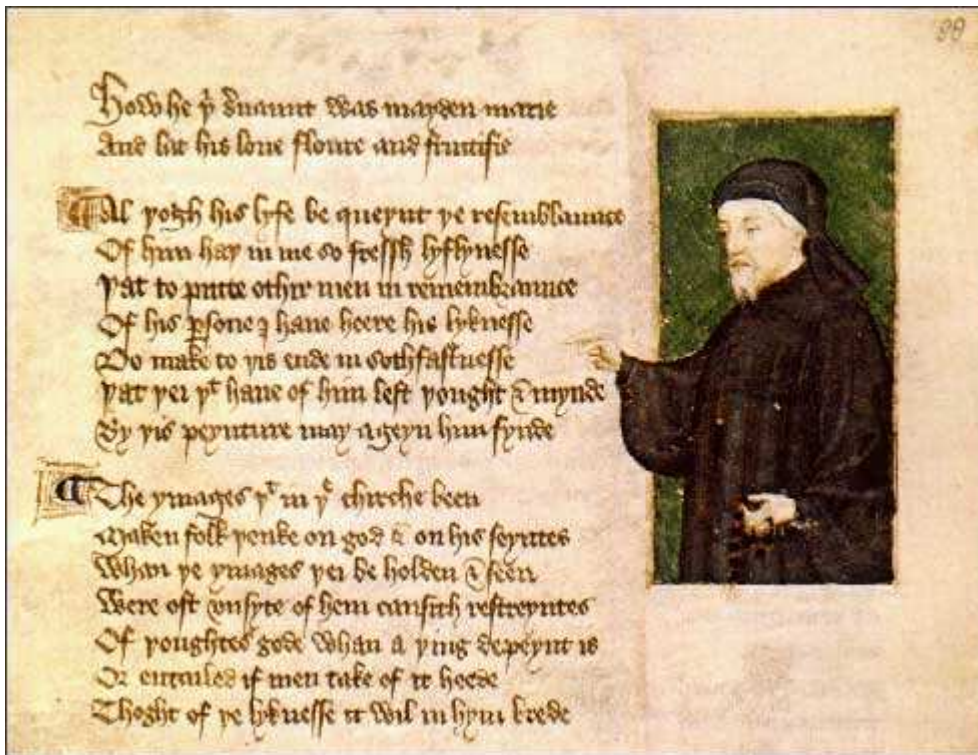 88
How he þͭ s̉uaunt was mayden marie
And lat his loue floure and fructifie
Al þogh his lyfe be queynt þe resemblaunce
Of him haþ in me so fressh lyflynesse
Þat to putte othir men in remembraunce
Of his ꝑsone I haue heere his lyknesse
Do make to þis ende in sothfastnesse
Þat þei þͭ haue of him left þought & mynde
By þis peynture may ageyn him fynde
The ymages þͭ in þͤ chirche been
Maken folk þenke on god & on his seyntes
Whan þe ymages þei be holden & seen
Were oft vnsyte of hem causith restreyntes
Of þoughtes gode whan a þing depeynt is
Or entailed if men take of it heede
Thoght of þe lyknesse it wil in hym brede